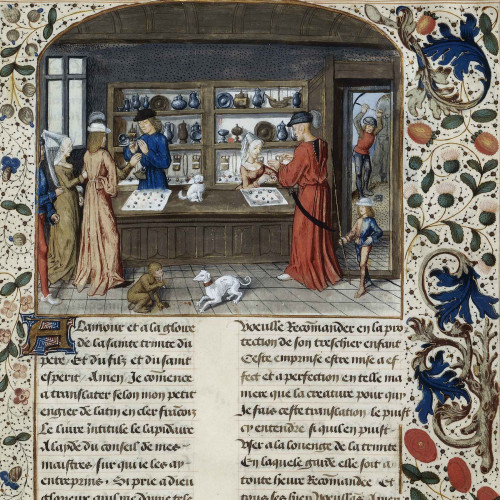 A lamour et a la gloire
de la sainte trinite du
pere Et du filz et du saint
esperit Amen Je comence
a translater selon mon petit
engier de latin en cler francois
Le livre intitule le lapidaire
A layde du conseil de mes
maistres sur qui je ay
entreprins Si prie a dieu
glorieux qui me donne tele
vueille Recomander en la pro
tection de son treschier enfant
Ceste emprise estre mise a ef
fect a perfection en telle ma
niere que la creature pour qui
Je fais ceste translation le puist
cy entendre si qu'en puist
user a la louenge de la trinite
En laquele guide elle soit a
toute heure Recomandee Et
tous les